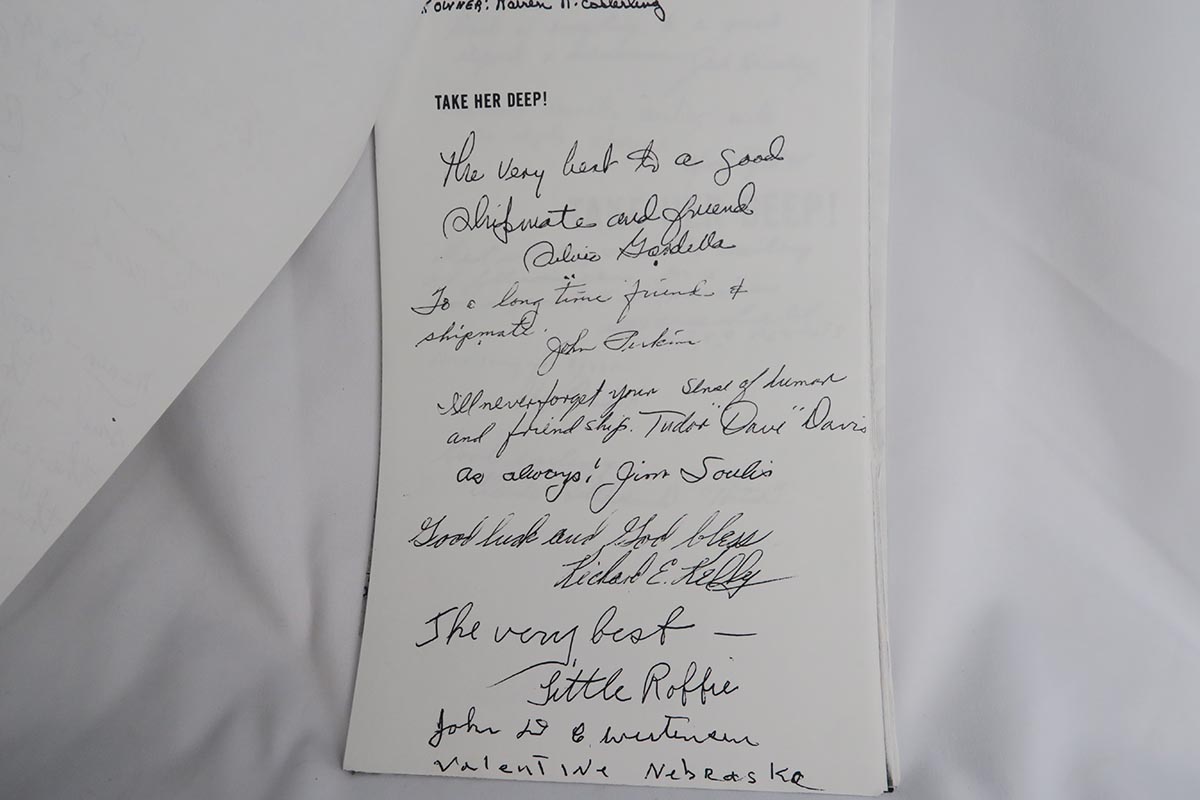 OWNER: H. Casterling
TAKE HER DEEP!
The very best to a good
shipmate and friend
Silvio Gardella
To a long time friend &
shipmate.
John Perkins
I'll never forget your sense of humor
and friendship. Tudor "Dave" Davis
as always! Jim Soulis
Good luck and God bless
Richard E. Kelly
The very best —
Little Roffie
John D E
Valentine Nebraska